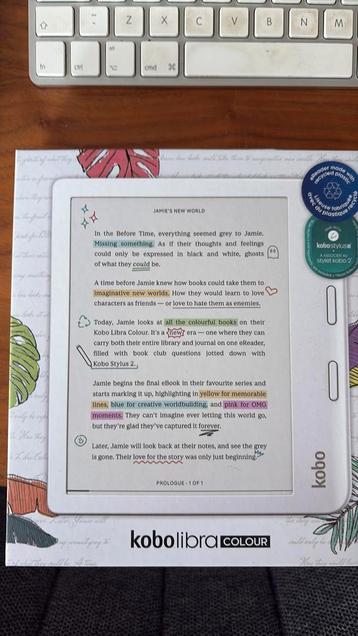 Z X C V B N M
fn ctrl alt ⌥ cmd ⌘
eReader made with
recycled plastic
Liseuse fabriquée
avec du plastique recyclé
kobostylus2
stylet kobo 2
JAMIE'S NEW WORLD
In the Before Time, everything seemed grey to Jamie.
Missing something. As if their thoughts and feelings
could only be expressed in black and white, ghosts
of what they could be.
A time before Jamie knew how books could take them to
imaginative new worlds. How they would learn to love
characters as friends — or love to hate them as enemies.
Today, Jamie looks at all the colourful books on their
Kobo Libra Colour. It's a new era — one where they can
carry both their entire library and journal on one eReader,
filled with book club questions jotted down with
Kobo Stylus 2.
Jamie begins the final eBook in their favourite series and
starts marking it up, highlighting in yellow for memorable
lines, blue for creative worldbuilding, and pink for OMG
moments. They can't imagine ever letting this world go,
but they're glad they've captured it forever.
Later, Jamie will look back at their notes, and see the grey
is gone. Their love for the story was only just beginning.
PROLOGUE - 1 OF 1
kobo
kobo libra COLOUR